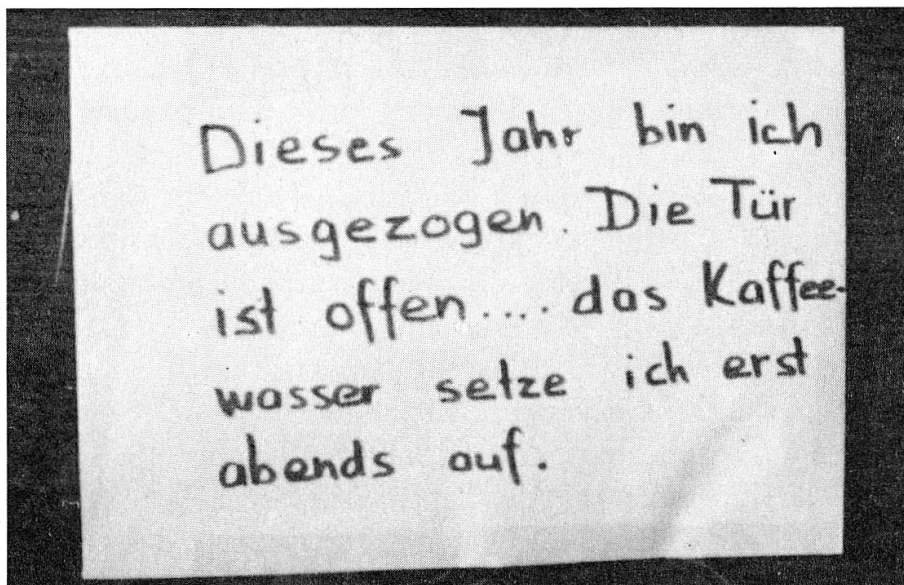 Dieses Jahr bin ich
ausgezogen. Die Tür
ist offen.... das Kaffee-
wasser setze ich erst
abends auf.